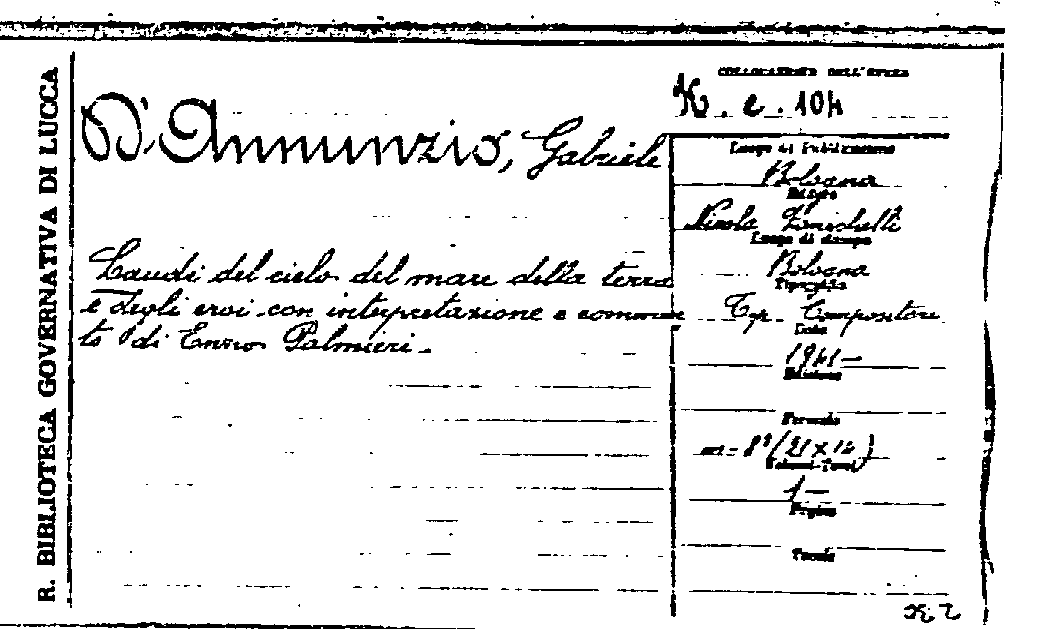 R. BIBLIOTECA GOVERNATIVA DI LUCCA
D'Annunzio, Gabriele
Laudi del cielo del mare della terra
e degli eroi con interpretazione e commen
to di Enzo Palmieri.
COLLOCAZIONE DELL'OPERA
K. e. 104
Luogo di Pubblicazione
Bologna
Editore
Nicola Zanichelli
Luogo di stampa
Bologna
Tipografia
Tip. Compositori
Data
1941-
Edizione
Formato
in-8° (21x14)
Volumi-Tomi
1-
Pagine
Tavole